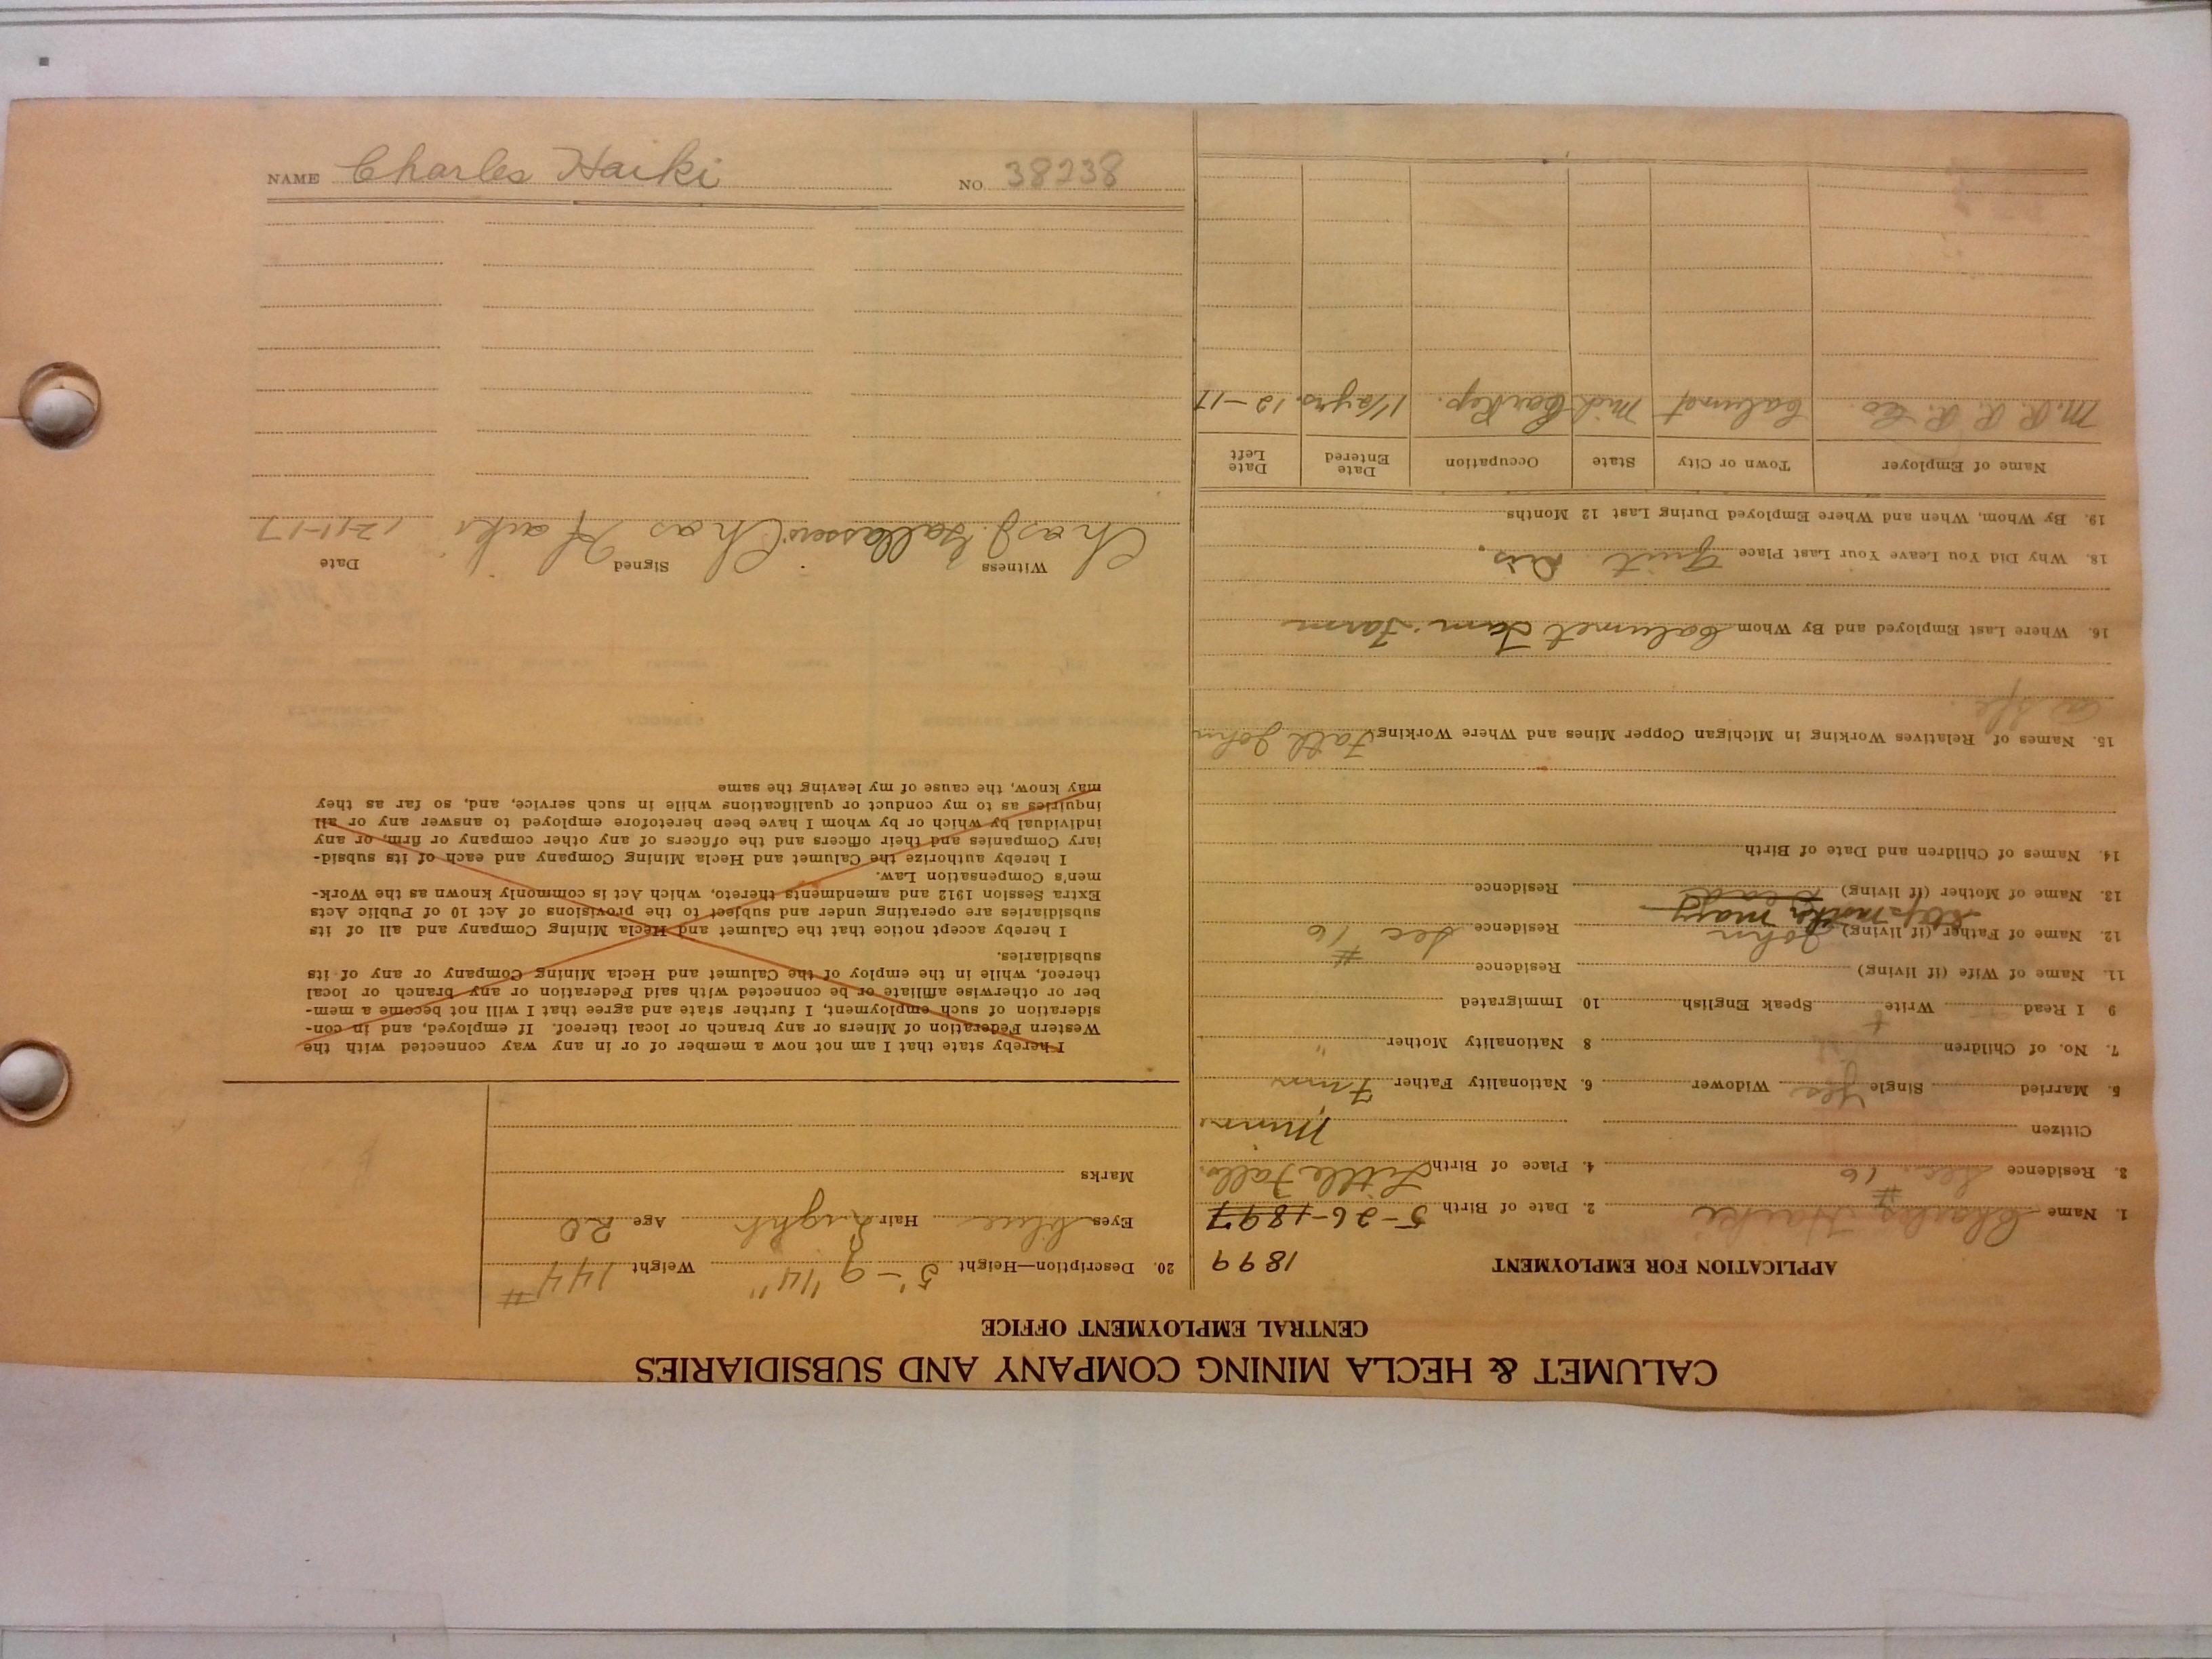 CALUMET & HECLA MINING COMPANY AND SUBSIDIARIES
CENTRAL EMPLOYMENT OFFICE
APPLICATION FOR EMPLOYMENT
1899
1. Name Charles Haiki 2. Date of Birth 5-26-1897
3. Residence Sec #16 4. Place of Birth Little Falls
Citizen Minn
5. Married Single Yes Widower 6. Nationality Father Finn
7. No. of Children 8 Nationality Mother "
9 I Read Write Speak English 10 Immigrated
11. Name of Wife (if living) Residence
12. Name of Father (if living) John Residence Sec #16
Step-mother Mary
13. Name of Mother (if living) Dead Residence
14. Names of Children and Date of Birth
15. Names of Relatives Working in Michigan Copper Mines and Where Working Fath John
16. Where Last Employed and By Whom Calumet Farm
18. Why Did You Leave Your Last Place Quit Dis.
19. By Whom, When and Where Employed During Last 12 Months
Name of Employer Town or City State Occupation Date Entered Date Left
M. R. R. R. Co. Calumet Mich Car Rep. 1 1/2 yrs. 12-17
20. Description—Height 5'-9 1/4" Weight 144#
Eyes blue Hair Light Age 20
Marks
I hereby state that I am not now a member of or in any way connected with the
Western Federation of Miners or any branch or local thereof. If employed, and in con-
sideration of such employment, I further state and agree that I will not become a mem-
ber or otherwise affiliate or be connected with said Federation or any branch or local
thereof, while in the employ of the Calumet and Hecla Mining Company or any of its
subsidiaries.
I hereby accept notice that the Calumet and Hecla Mining Company and all of its
subsidiaries are operating under and subject to the provisions of Act 10 of Public Acts
Extra Session 1912 and amendments thereto, which Act is commonly known as the Work-
men's Compensation Law.
I hereby authorize the Calumet and Hecla Mining Company and each of its subsid-
iary Companies and their officers and the officers of any other company or firm, or any
individual by which or by whom I have been heretofore employed to answer any or all
inquiries as to my conduct or qualifications while in such service, and, so far as they
may know, the cause of my leaving the same
Witness Signed Date
Chas J. Chas Haiki 12-11-17
NAME Charles Haiki NO. 38238